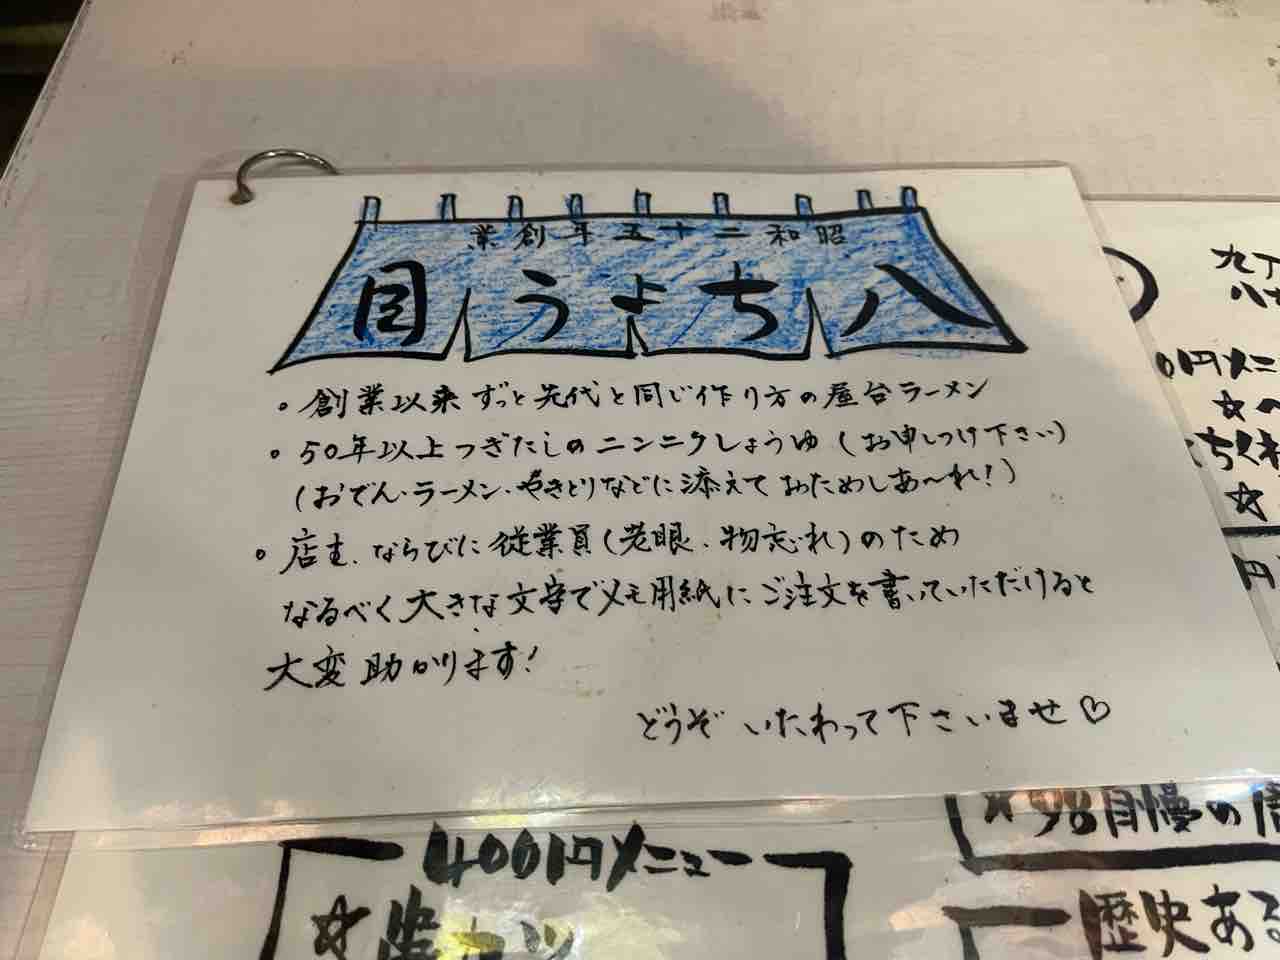 昭和二十五年創業
八ちょう目
。創業以来ずっと先代と同じ作り方の屋台ラーメン
。50年以上つぎたしのニンニクしょうゆ(お申しつけ下さい)
(おでん・ラーメン・やきとりなどに添えておためしあ〜れ!)
。店主、ならびに従業員(老眼、物忘れ)のため
なるべく大きな文字でメモ用紙にご注文を書いていただけると
大変助かります!
どうぞ いたわって下さいませ♡
0円メニ
☆
☆
円
☆98自慢の
400円メニュー
☆串カツ
歴史ある